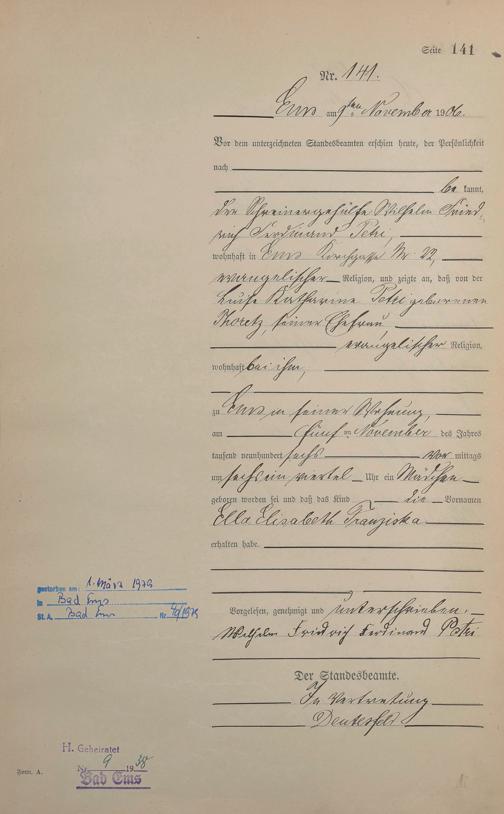 Seite 141
Nr. 141.
Ems am 9ten November 1906.
Vor dem unterzeichneten Standesbeamten erschien heute, der Persönlichkeit
nach
be kannt,
der Schreinergehülfe Wilhelm Fried-
rich Ferdinand Petri,
wohnhaft in Ems Kirchgasse Nr. 22,
evangelischer Religion, und zeigte an, daß von der
Luise Katharine Petri geborenen
seiner Ehefrau
evangelischer Religion,
wohnhaft bei ihm,
zu Ems in seiner Wohnung,
am fünf ten November des Jahres
tausend neunhundert sechs vor mittags
um sechs ein viertel Uhr ein Mädchen
geboren worden sei und daß das Kind die Vornamen
Ella Elisabeth Franziska
erhalten habe.
gestorben am: 1. März 1979
in Bad Ems
St. A. Bad Ems Nr. /1979
Vorgelesen, genehmigt und unterschrieben.
Wilhelm Fridrich Ferdinand Petri
Der Standesbeamte.
In Vertretung
H. Geheiratet
Nr. 9 1938
Bad Ems
Form. A.